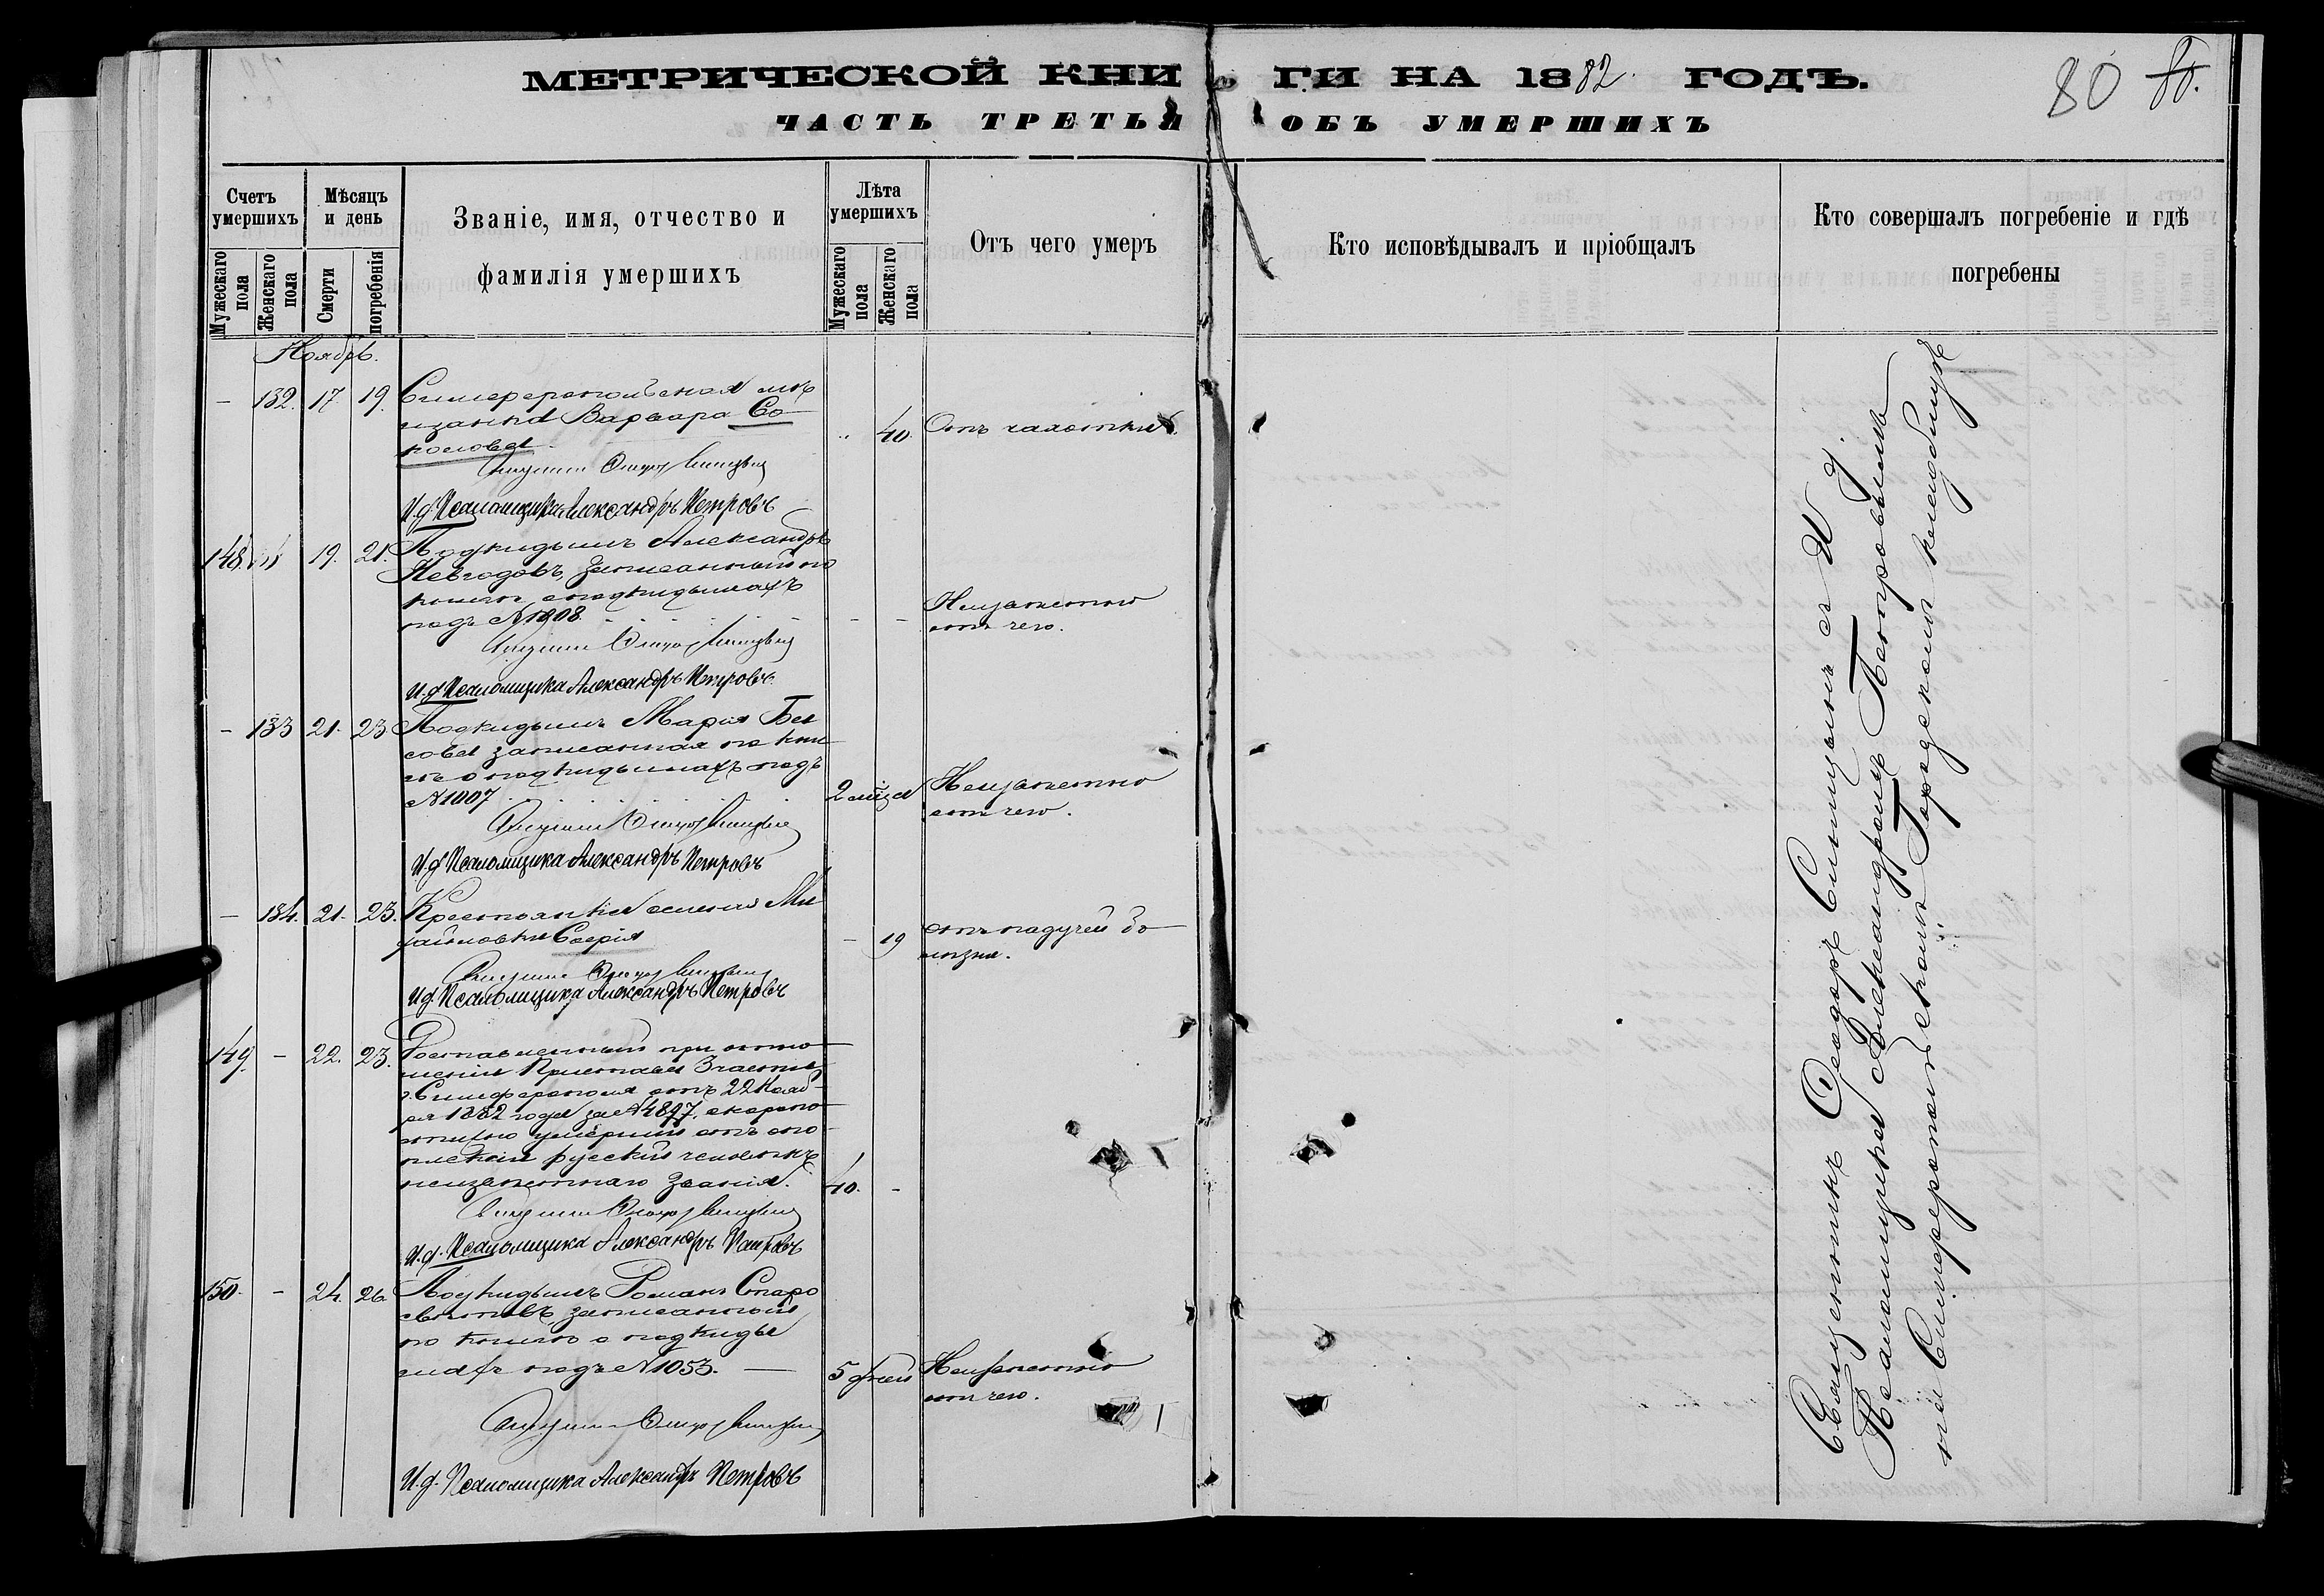 МЕТРИЧЕСКОЙ КНИГИ НА 1882 ГОДЪ.
80 80.
ЧАСТЬ ТРЕТЬЯ ОБЪ УМЕРШИХЪ
Счетъ умершихъ
Мужескаго пола
Женскаго пола
Мѣсяцъ и день
Смерти
погребенія
Званіе, имя, отчество и
фамилія умершихъ
Лѣта умершихъ
Мужескаго пола
Женскаго пола
Отъ чего умеръ
Кто исповѣдывалъ и пріобщалъ
Кто совершалъ погребеніе и гдѣ
погребены
Ноябрь.
— 132. 17. 19. Симферопольская мѣ
щанка Варвара Со
колова
„ 40. Отъ чахотки.
И. д. Псаломщика Александръ Петровъ
148. 19. 21. Подкидышъ Александръ
Невзодовъ, записанный по
книгѣ о подкидышахъ
подъ №1008.
— — Неизвѣстно
отъ чего.
И. д. Псаломщика Александръ Петровъ
— 133 21. 23 Подкидышъ Марія
записанная по кни
гѣ о подкидышахъ подъ
№1007
2 мѣсца Неизвѣстно
отъ чего.
И. д. Псаломщика Александръ Петровъ
— 134. 21. 23. Крестьянка селенія Ми
хайловки Софія
— 19 отъ падучей бо
лѣзни.
И. д. Псаломщика Александръ Петровъ
149. — 22. 23. Доставленный при отно
шеніи Пристава 3 части
г. Симферополя отъ 22 Нояб
ря 1882 года за №4897. скоропо
стижно умершій отъ
русскій человѣкъ
неизвѣстнаго званія.
40. —
И. д. Псаломщика Александръ Петровъ
150. — 24. 26. Подкидышъ Романъ Старо
записанный
по книгѣ о подкиды
шахъ подъ №1053. —
5 дней Неизвѣстно
отъ чего.
И. д. Псаломщика Александръ Петровъ
Священникъ Ѳеодоръ Синицынъ съ И. д.
Псаломщика Александромъ Петровымъ
на Симферопольскомъ Городскомъ кладбищѣ